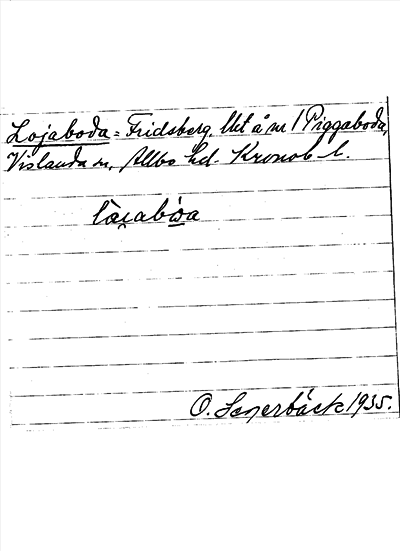 Lojaboda = Fridsberg, lht å nr 1 Piggaboda,
Vislanda sn, Allbo hd. Kronob. l.
O. Lagerbäck 1935.